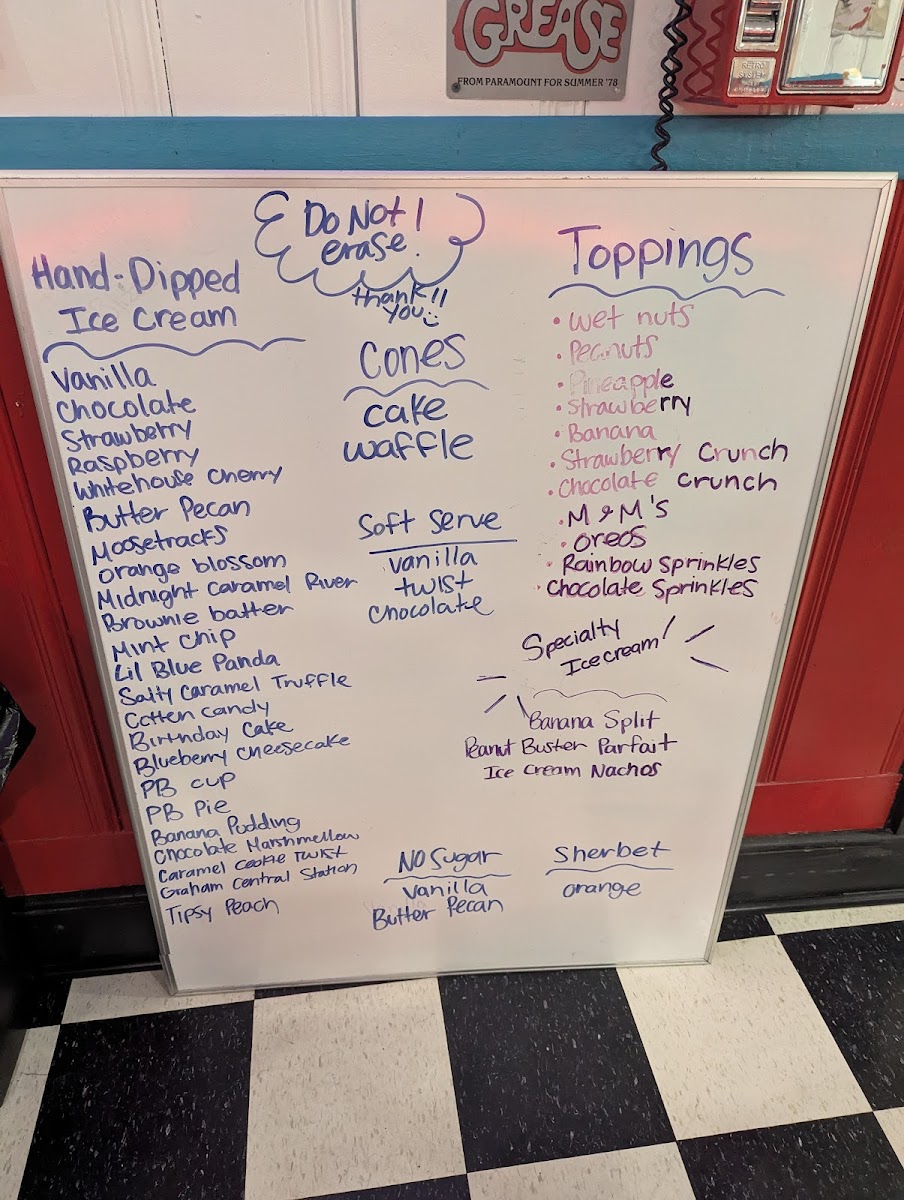 GREASE
FROM PARAMOUNT FOR SUMMER '78
RETRO
Do Not!
erase.
thank!!
you
Hand-Dipped
Ice Cream
Vanilla
Chocolate
Strawberry
Raspberry
Whitehouse Cherry
Butter Pecan
Moosetracks
Orange blossom
Midnight Caramel River
Brownie batter
Mint Chip
Lil Blue Panda
Salty Caramel Truffle
Cotten Candy
Birthday Cake
Blueberry Cheesecake
PB cup
PB Pie
Banana Pudding
Chocolate Marshmellow
Caramel Cookie Twist
Graham Central Station
Tipsy Peach
Cones
cake
waffle
Soft Serve
vanilla
twist
Chocolate
No Sugar
Vanilla
Butter Pecan
Toppings
• wet nuts
• Peanuts
• Pineapple
• Strawberry
• Banana
• Strawberry Crunch
• Chocolate Crunch
• M & M's
• oreos
• Rainbow Sprinkles
• Chocolate Sprinkles
Specialty
Ice cream!
Banana Split
Peanut Buster Parfait
Ice Cream Nachos
Sherbet
orange